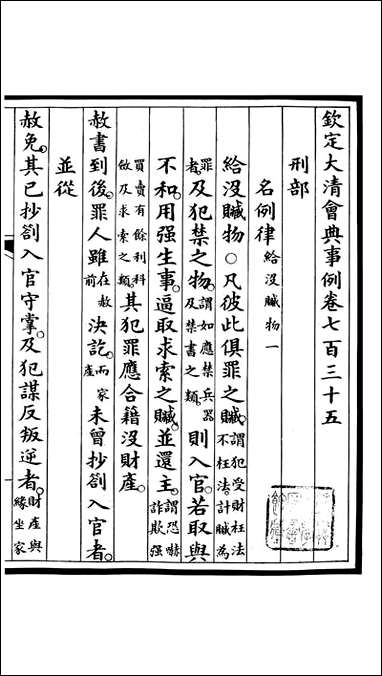 欽定大清會典事例卷七百三十五
刑部
名例律給沒贓物一
給沒贓物○凡彼此俱罪之贓。謂犯受財枉法不枉法。計贓為
罪者。及犯禁之物。謂如應禁兵器及禁書之類。則入官。若取與
不和。用强生事。逼取求索之贓。並還主。謂恐嚇詐欺强
買賣有餘利科歛及求索之類。其犯罪應合籍沒財產。
赦書到後。罪人雖在赦前決訖。而家產未曾抄劄入官者。
並從
赦免。其已抄劄入官守掌。及犯謀反叛逆者。財產與緣坐家